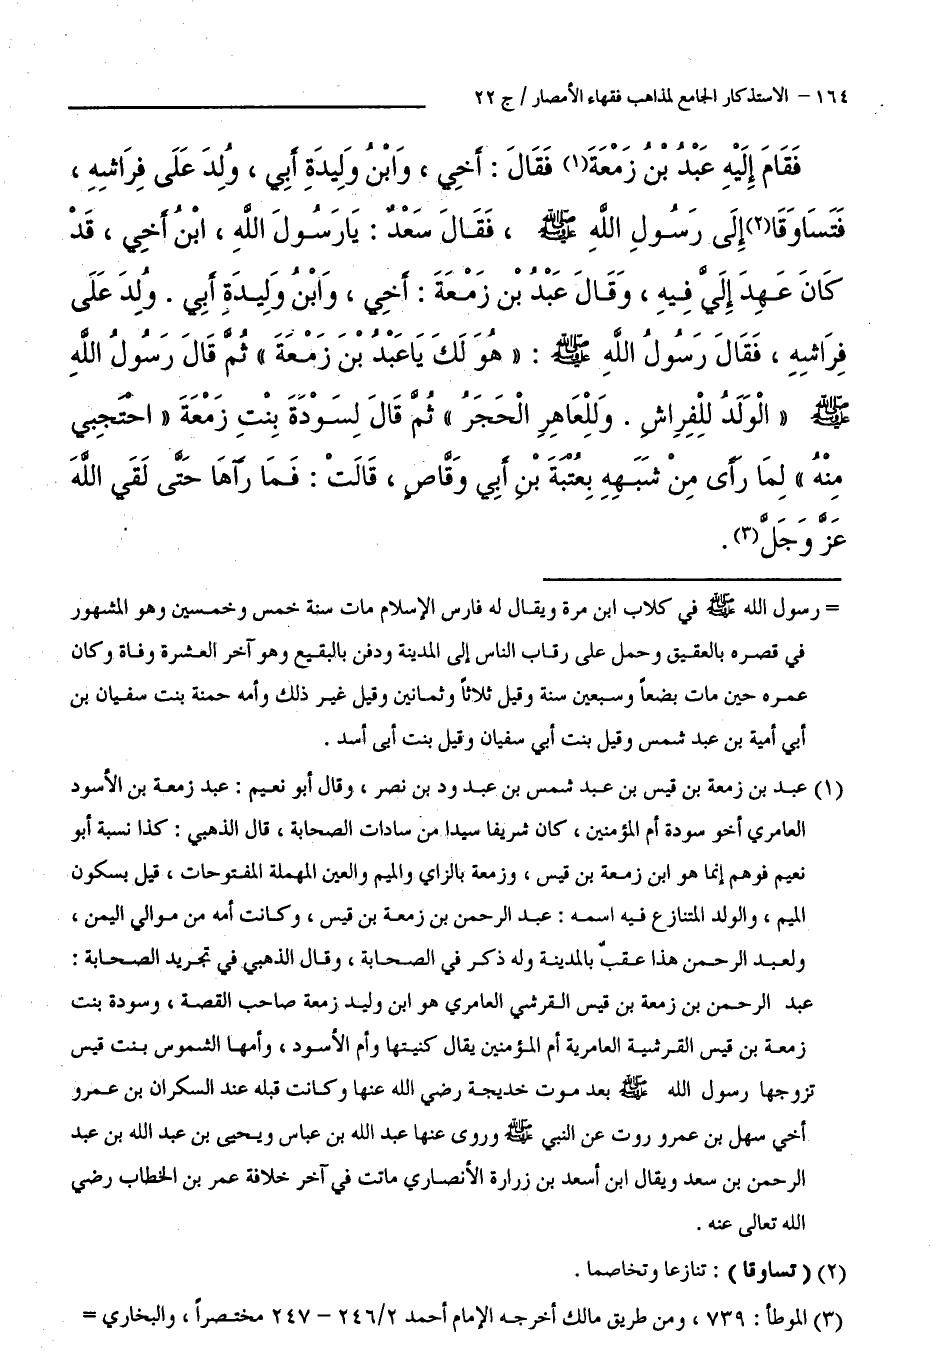 ١٦٤ - الاستذكار الجامع لمذاهب فقهاء الأمصار / ج ٢٢
فَقَامَ إِلَيْهِ عَبْدُ بْنُ زَمْعَةَ(١) فَقَالَ : أَخِي ، وَابْنُ وَلِيدَةِ أَبِي ، وُلِدَ عَلَى فِرَاشِهِ ،
فَتَسَاوَقَا(٢)إِلَى رَسُولِ اللَّهِ ﷺ ، فَقَالَ سَعْدٌ : يَارَسُولَ اللَّهِ ، ابْنُ أَخِي ، قَدْ
كَانَ عَهِدَ إِلَيَّ فِيهِ ، وَقَالَ عَبْدُ بْنُ زَمْعَةَ : أَخِي ، وَابْنُ وَلِيدَةِ أَبِي . وُلِدَ عَلَى
فِرَاشِهِ ، فَقَالَ رَسُولُ اللَّهِ ﷺ : « هُوَ لَكَ يَاعَبْدُ بْنَ زَمْعَةَ » ثُمَّ قَالَ رَسُولُ اللَّهِ
ﷺ « الْوَلَدُ لِلْفِرَاشِ . وَلِلْعَاهِرِ الْحَجَرُ » ثُمَّ قَالَ لِسَوْدَةَ بِنْتِ زَمْعَةَ « احْتَجِبِي
مِنْهُ » لِمَا رَأَى مِنْ شَبَهِهِ بِعُتْبَةَ بْنِ أَبِي وَقَّاصٍ ، قَالَتْ : فَمَا رَآهَا حَتَّى لَقِيَ اللَّهَ
عَزَّ وَجَلَّ(٣) .
= رسول الله ﷺ في كلاب ابن مرة ويقال له فارس الإسلام مات سنة خمس وخمسين وهو المشهور
في قصره بالعقيق وحمل على رقاب الناس إلى المدينة ودفن بالبقيع وهو آخر العشرة وفاة وكان
عمره حين مات بضعاً وسبعين سنة وقيل ثلاثاً وثمانين وقيل غير ذلك وأمه حمنة بنت سفيان بن
أبي أمية بن عبد شمس وقيل بنت أبي سفيان وقيل بنت أبى أسد .
(١) عبد بن زمعة بن قيس بن عبد شمس بن عبد ود بن نصر ، وقال أبو نعيم : عبد زمعة بن الأسود
العامري أخو سودة أم المؤمنين ، كان شريفا سيدا من سادات الصحابة ، قال الذهبي : كذا نسبة أبو
نعيم فوهم إنما هو ابن زمعة بن قيس ، وزمعة بالزاي والميم والعين المهملة المفتوحات ، قيل بسكون
الميم ، والولد المتنازع فيه اسمه : عبد الرحمن بن زمعة بن قيس ، وكانت أمه من موالي اليمن ،
ولعبد الرحمن هذا عقبٌ بالمدينة وله ذكر في الصحابة ، وقال الذهبي في تجريد الصحابة :
عبد الرحمن بن زمعة بن قيس القرشي العامري هو ابن وليد زمعة صاحب القصة ، وسودة بنت
زمعة بن قيس القرشية العامرية أم المؤمنين يقال كنيتها وأم الأسود ، وأمها الشموس بنت قيس
تزوجها رسول الله ﷺ بعد موت خديجة رضي الله عنها وكانت قبله عند السكران بن عمرو
أخي سهل بن عمرو روت عن النبي ﷺ وروى عنها عبد الله بن عباس ويحيى بن عبد الله بن عبد
الرحمن بن سعد ويقال ابن أسعد بن زرارة الأنصاري ماتت في آخر خلافة عمر بن الخطاب رضي
الله تعالى عنه .
(٢) ( تساوقا ) : تنازعا وتخاصما .
(٣) الموطأ : ٧٣٩ ، ومن طريق مالك أخرجه الإمام أحمد ٢٤٦/٢ – ٢٤٧ مختصراً ، والبخاري =